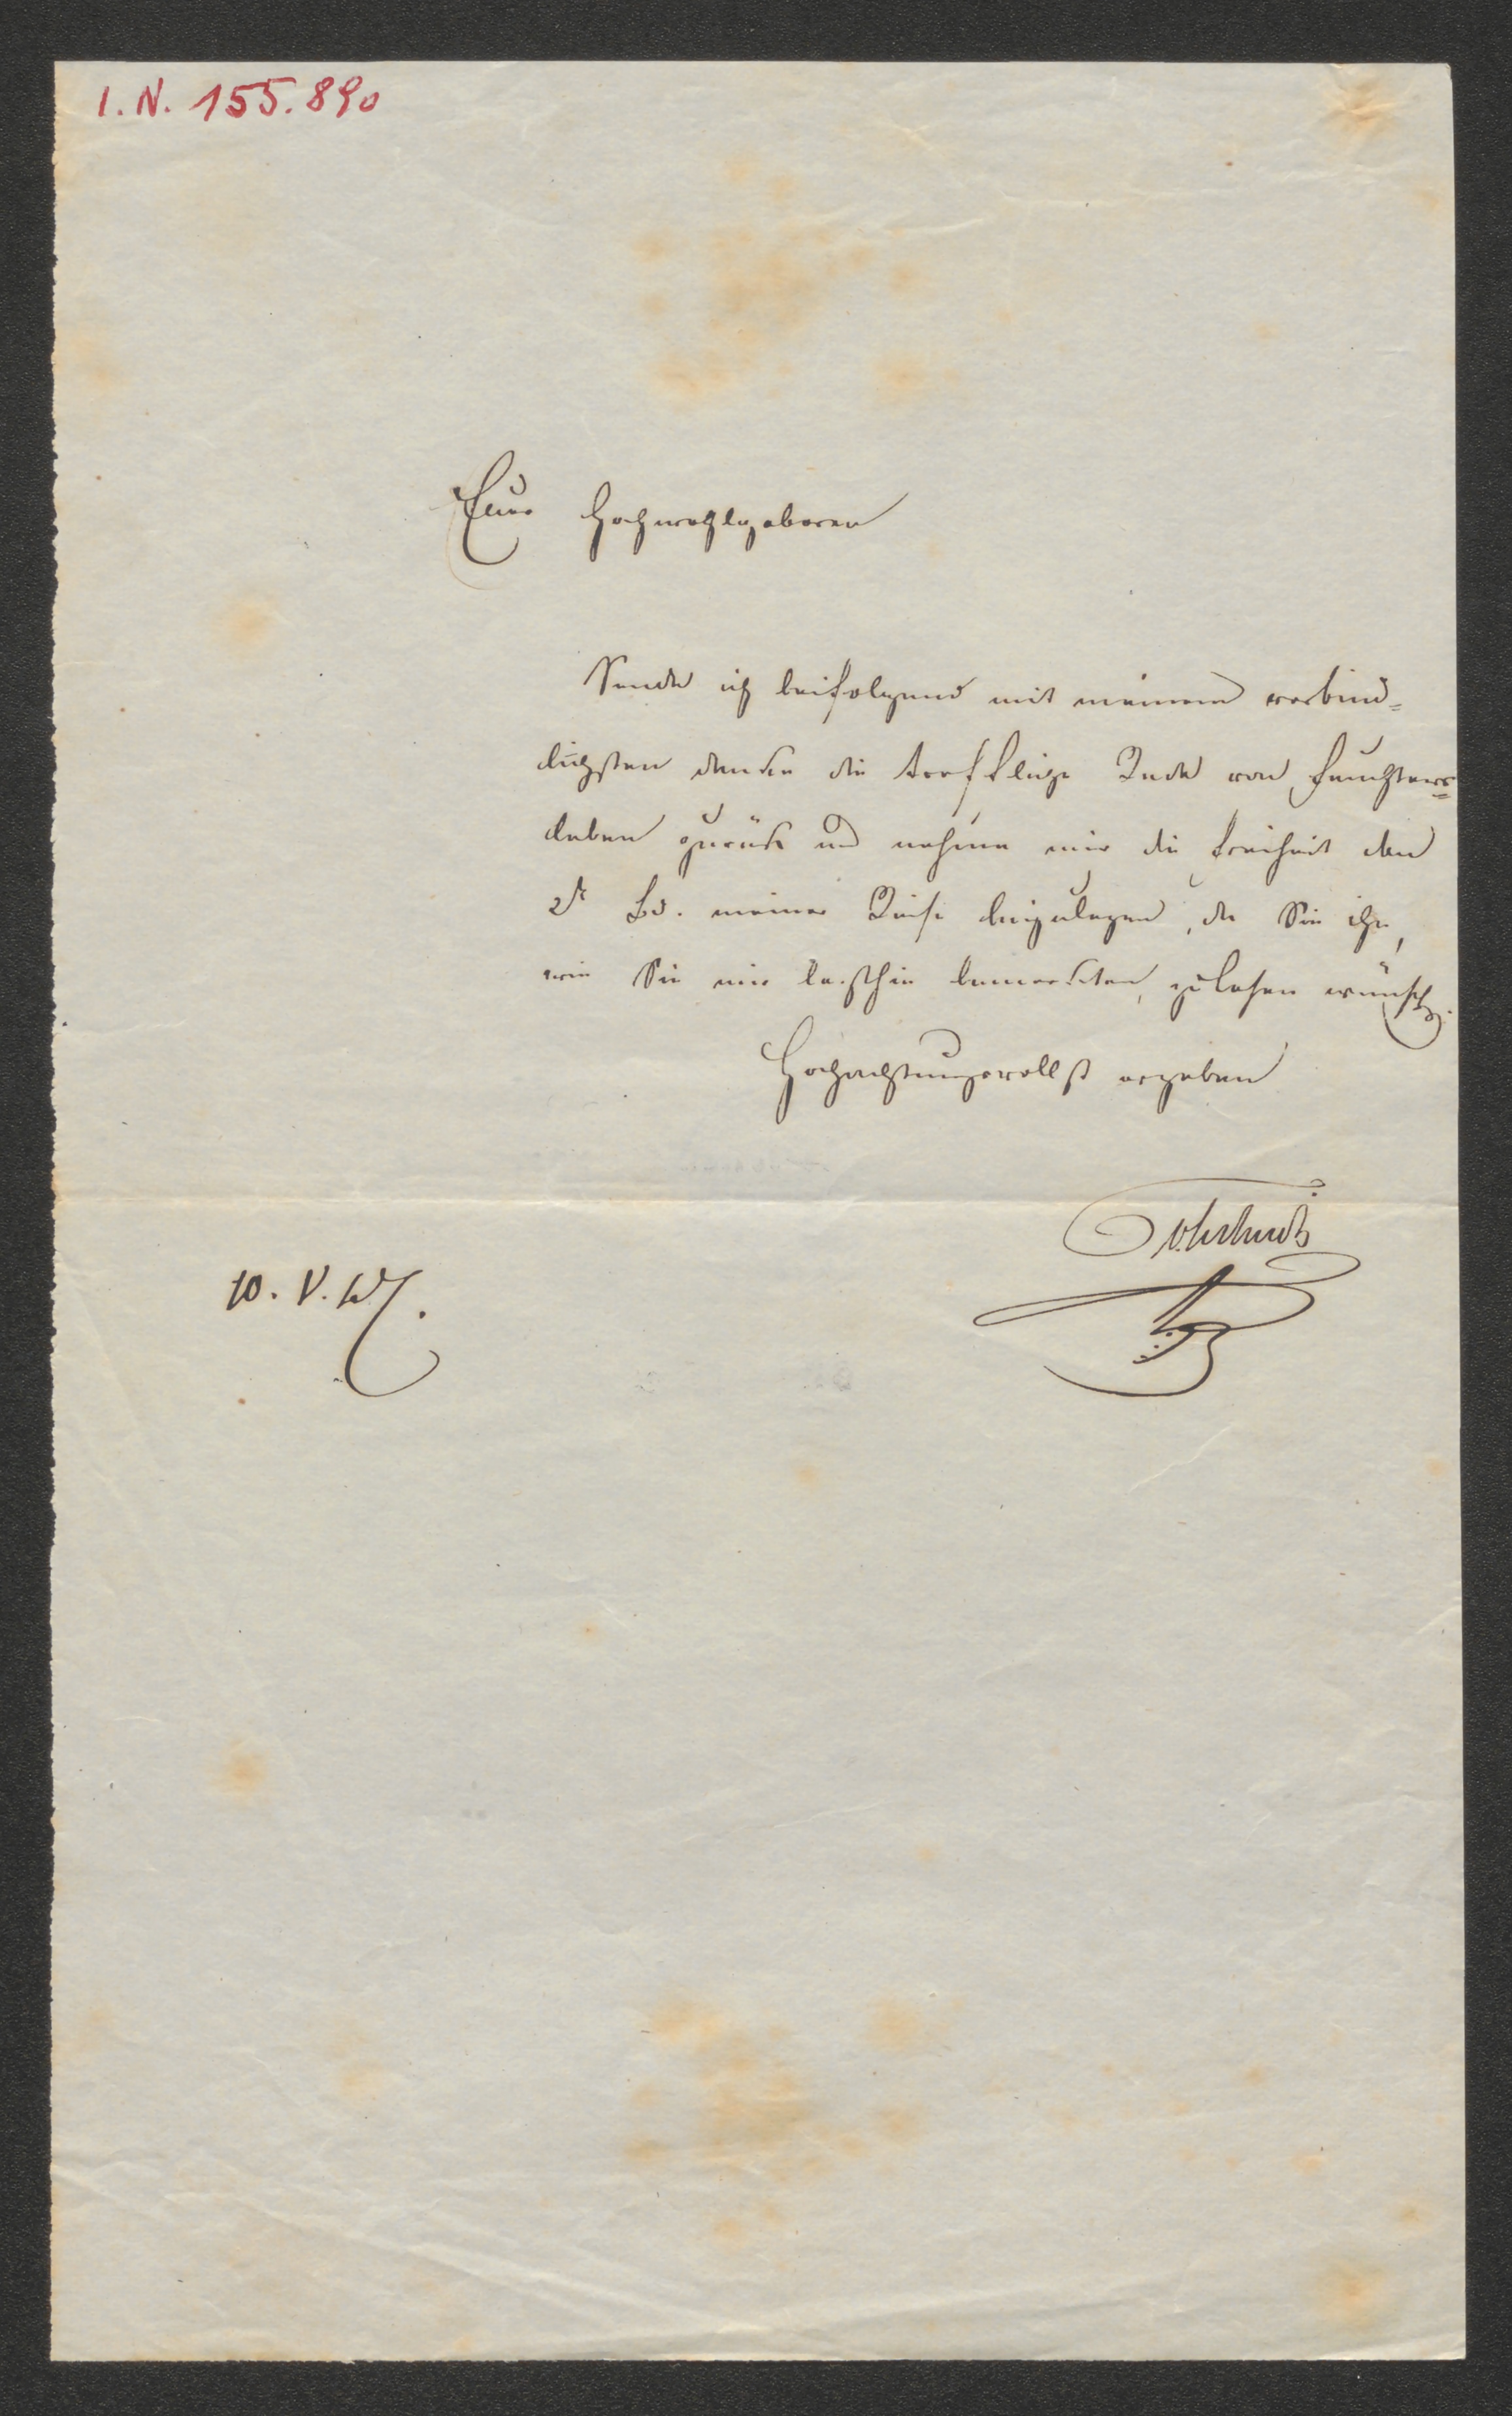 I. N. 155.890
Euer Hochwohlgeboren
Sende ich beifolgend mit meinem verbind=
lichsten Danke die treffliche Rede von Feuchters=
leben zurück und nehme mir die Freiheit den
2t Bd. meiner Reise beizulegen, da Sie ihn,
wie Sie mir letzthin bemerkten, zu lesen wünschten.
Hochachtungsvollst ergeben
10. V.